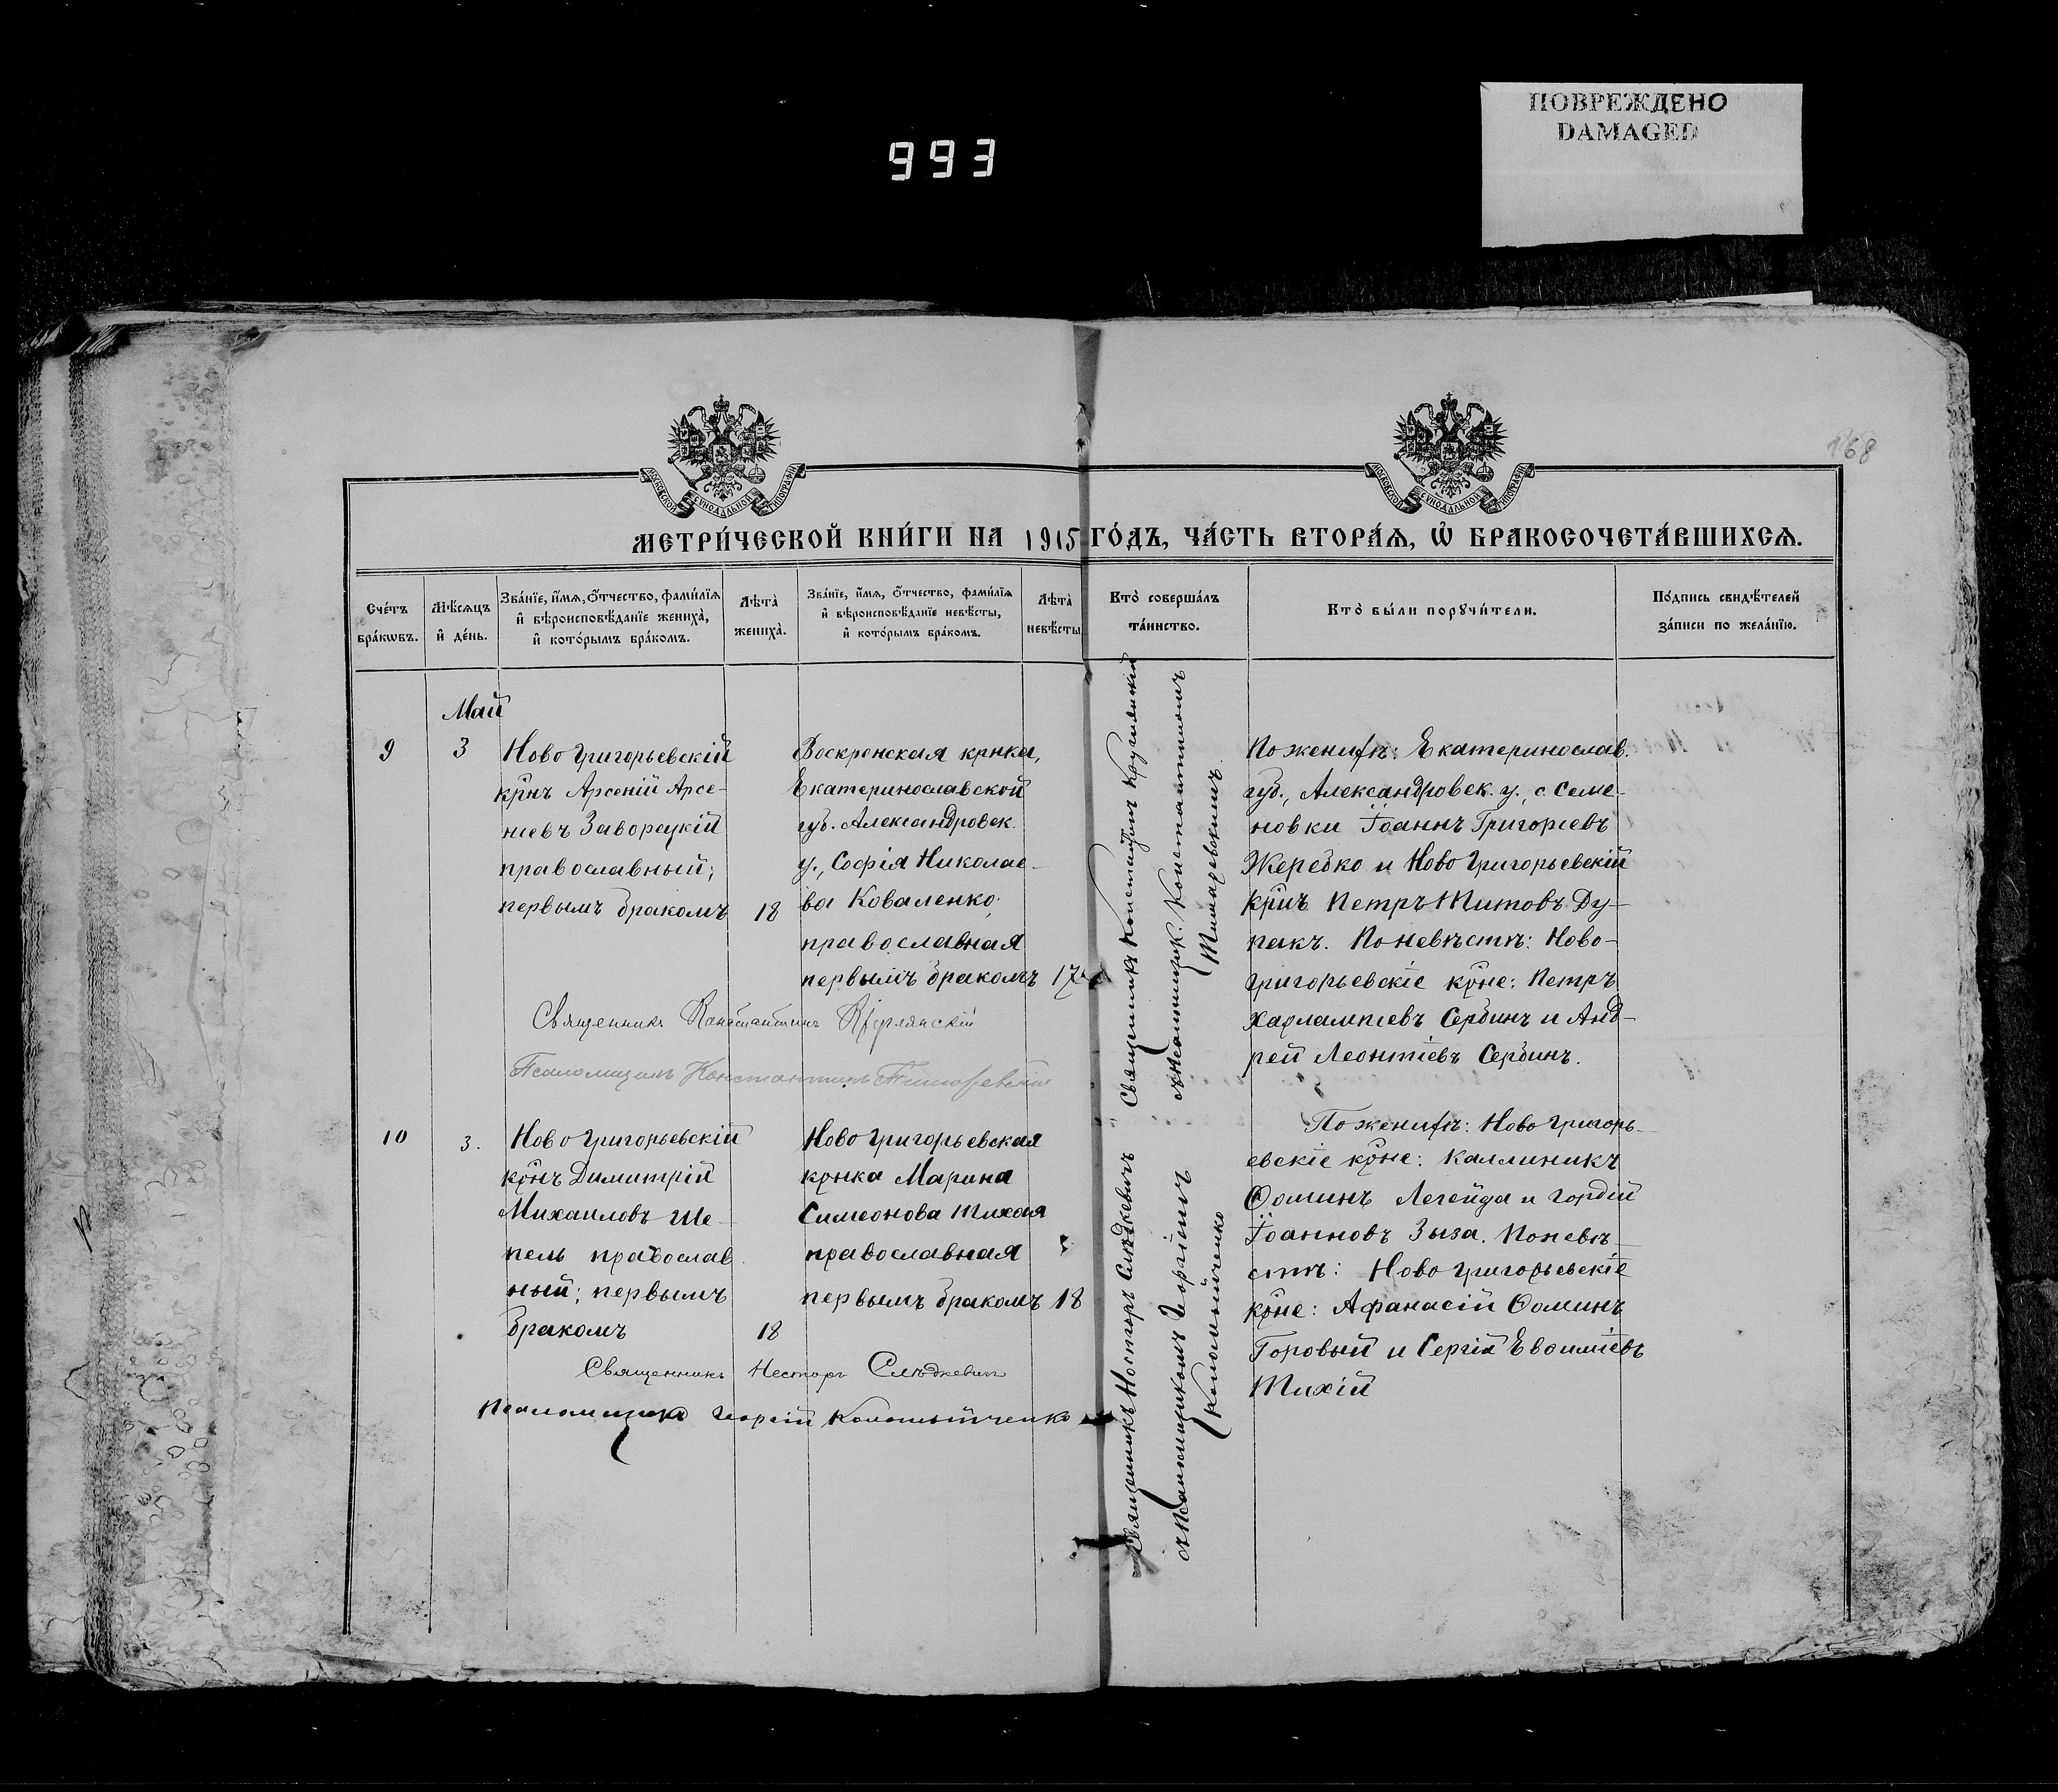 ПОВРЕЖДЕНО
DAMAGED
993
168
МОСКОВСКОЙ СУНОДАЛЬНОЙ ТИПОГРАФІИ
МОСКОВСКОЙ СУНОДАЛЬНОЙ ТИПОГРАФІИ
МЕТРИ́ЧЕСКОЙ КНИ́ГИ НА 1915 ГО́ДЪ, ЧА́СТЬ ВТОРА́Ѧ, Ѡ҆ БРАКОСОЧЕТА́ВШИХСѦ.
Сче́тъ
бра́кѡвъ.
Мѣ́сѧцъ
и҆ де́нь.
Зва́нїе, и҆́мѧ, ѻ҆́тчество, фами́лїѧ
и҆ вѣроисповѣ́данїе жениха̀,
и҆ кото́рымъ бра́комъ.
Лѣта̀
жениха̀.
Зва́нїе, и҆́мѧ, ѻ҆́тчество, фами́лїѧ
и҆ вѣроисповѣ́данїе невѣ́сты,
и҆ кото́рымъ бра́комъ.
Лѣта̀
невѣ́сты
Кто̀ соверша́лъ
та́инство.
Кто̀ бы́ли порꙋчи́тели.
По́дпись свидѣ́телей
за́писи по жела́нїю.
Май
9
3
Ново Григорьевскій
крнъ Арсеній Арсе-
ніевъ Заворецкій
православный;
первымъ бракомъ
18
Воскренская крнка,
Екатеринославской
губ. Александровск.
у., Софія Николае-
ва Коваленко;
православная
первымъ бракомъ
17
Священникъ Константинъ
съ псаломщик. Константиномъ
Тимоѳевскимъ.
По женихѣ: Екатеринослав.
губ., Александровск. у., с. Семе-
новки Іоаннъ Григоріевъ
Жеребко и Ново Григорьевскій
крнъ Петръ Титовъ Ду-
пакъ. По невѣстѣ: Ново-
григорьевскіе крне: Петръ
Харлампіевъ Сербинъ и Анд-
рей Леонтіевъ Сербинъ.
Священникъ Константинъ
Псаломщикъ Константинъ Тимоѳевскій
10
3.
Ново Григорьевскій
крнъ Димитрій
Михаиловъ Ше-
пель православ
ный; первымъ
бракомъ
18
Ново Григорьевская
крнка Марина
Симеонова Тихая
православная
первымъ бракомъ
18
Священникъ Несторъ Слѣдкевичъ
съ псаломщикомъ Георгіемъ
Коломыйченко
По женихѣ: Ново Григорь-
евскіе крне: Каллиникъ
Ѳоминъ Легейда и Гордій
Іоанновъ Зыза. По невѣ-
стѣ: Ново Григорьевскіе
крне: Афанасій Ѳоминъ
Горовый и Сергій Евѳиміевъ
Тихій
Священникъ Несторъ Слѣдкевичъ
Псаломщикъ Георгій Коломыйченко